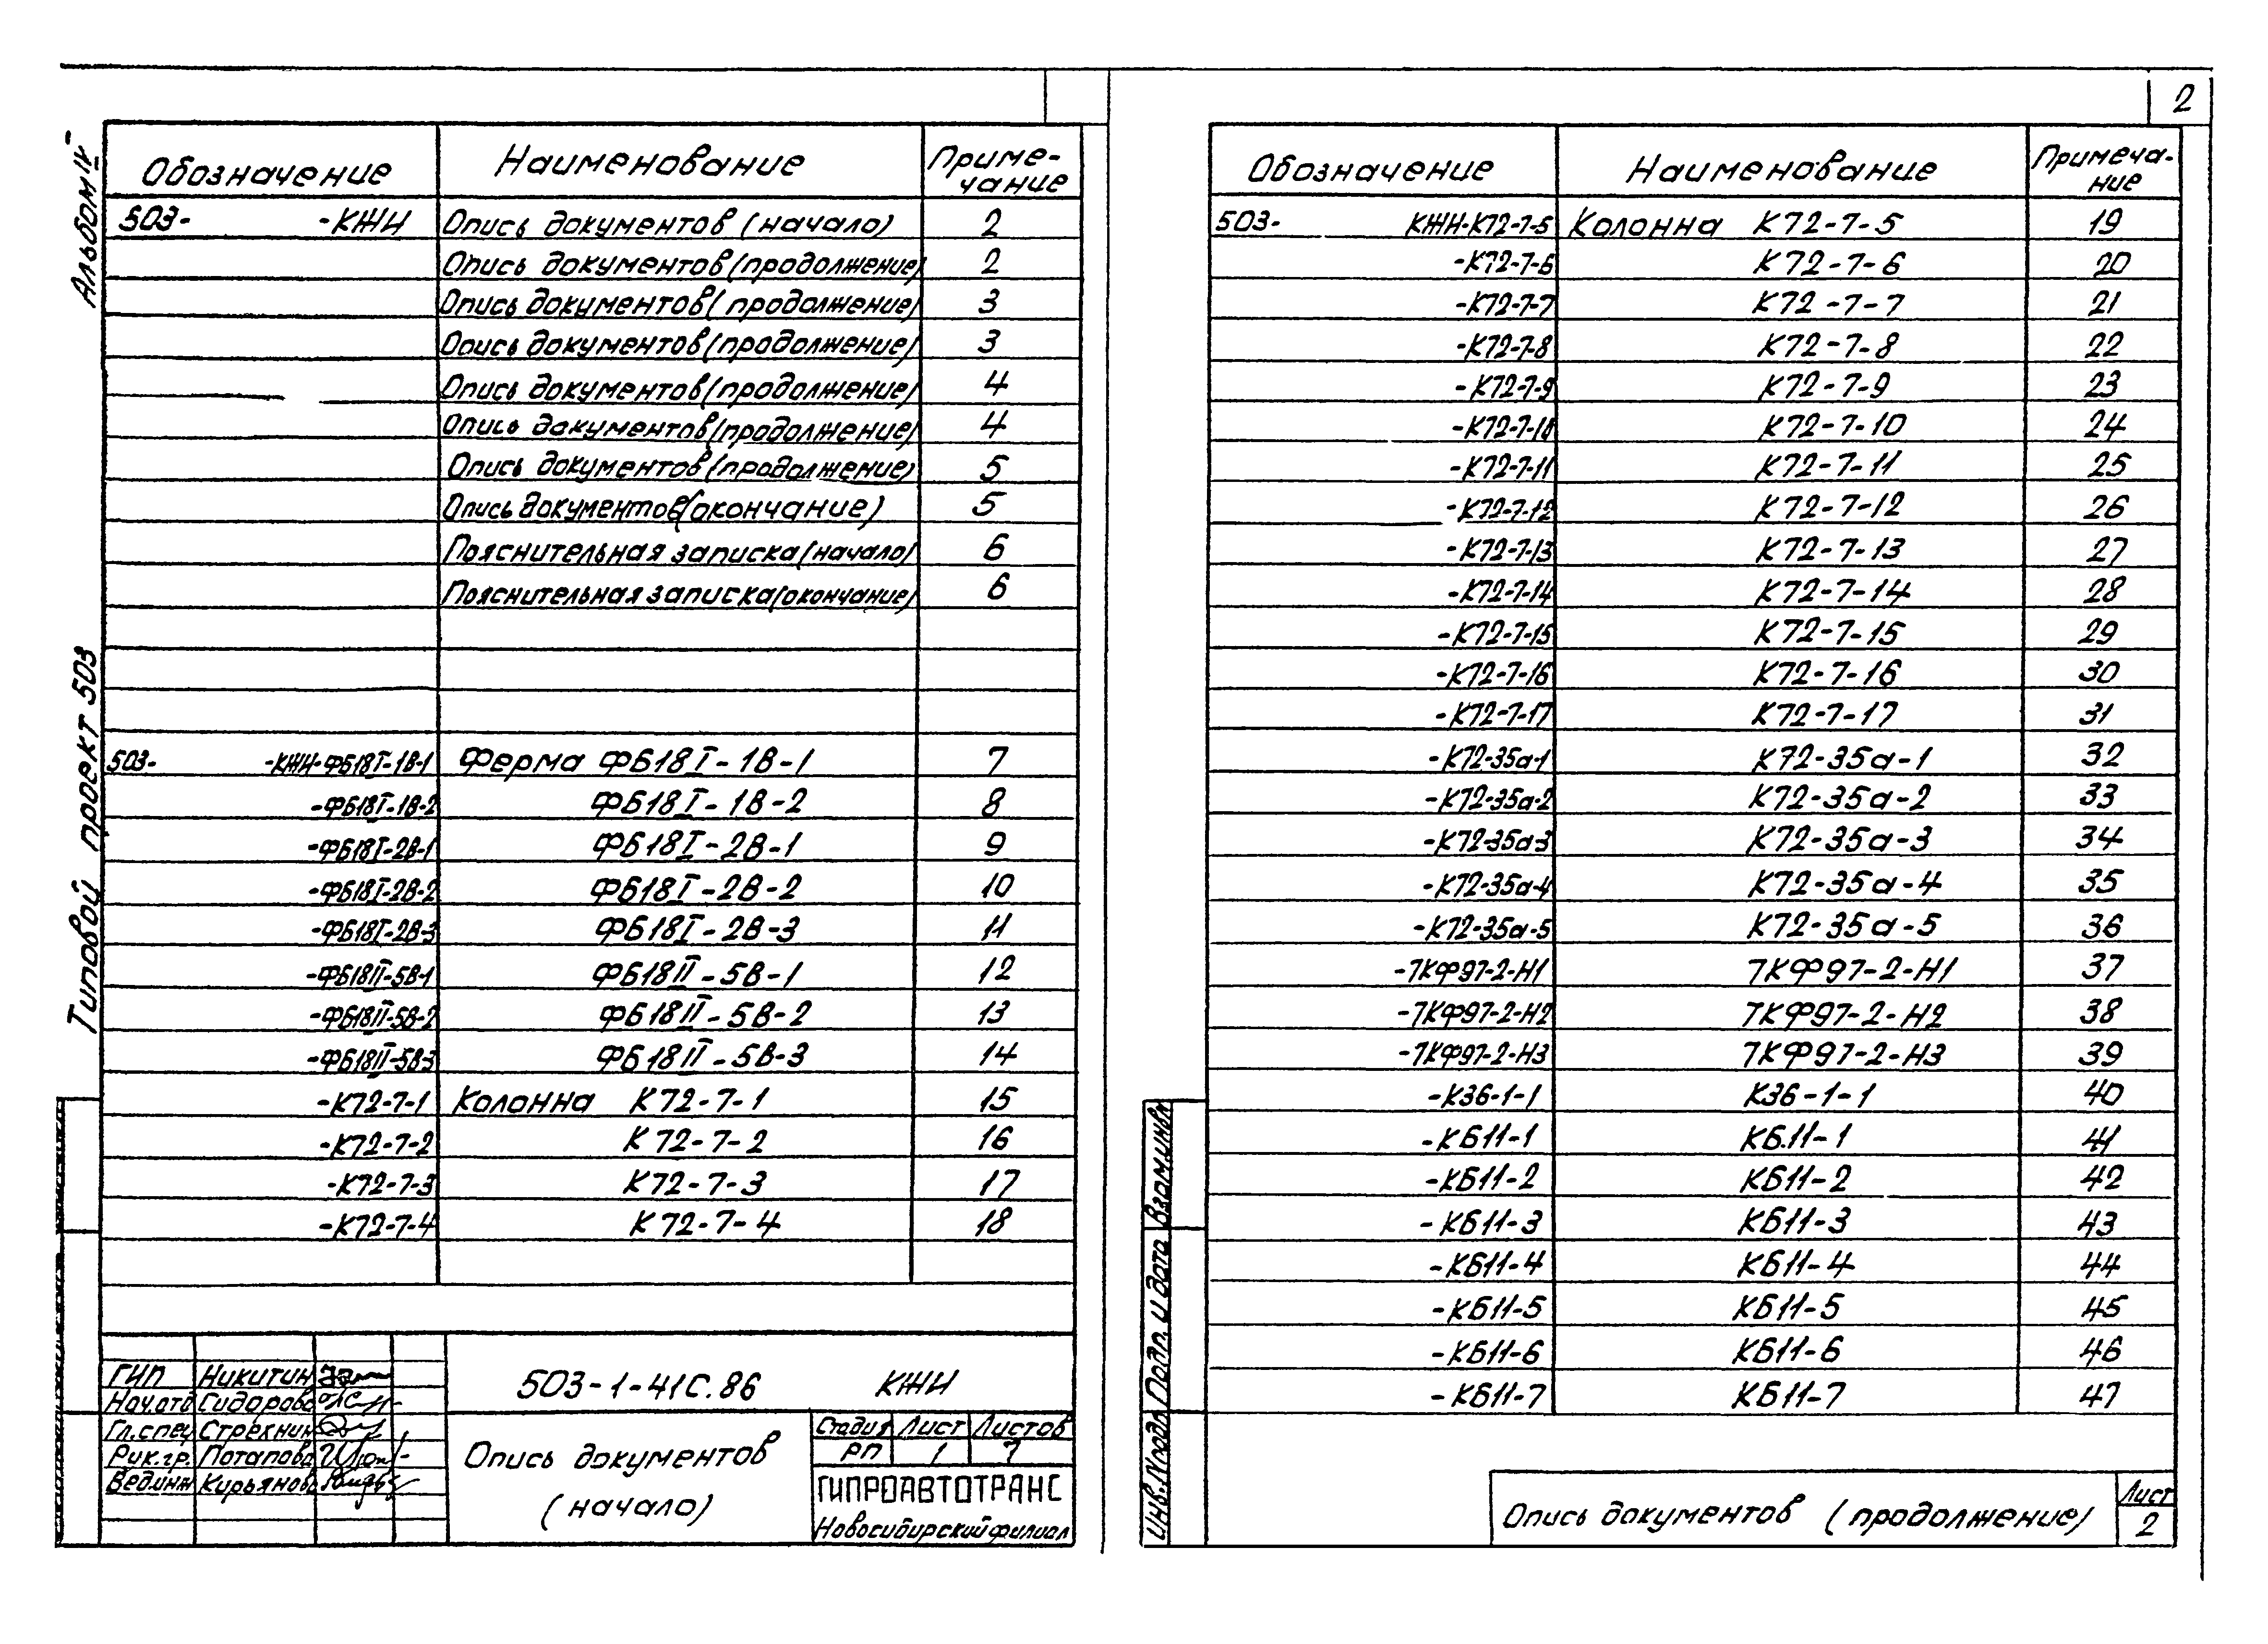 2
Альбом IV
Типовой проект 503
Обозначение Наименование Приме-
чание
503- -КЖИ Опись документов (начало) 2
Опись документов (продолжение) 2
Опись документов (продолжение) 3
Опись документов (продолжение) 3
Опись документов (продолжение) 4
Опись документов (продолжение) 4
Опись документов (продолжение) 5
Опись документов (окончание) 5
Пояснительная записка (начало) 6
Пояснительная записка (окончание) 6
503- -КЖИ-ФБ18I-1В-1 Ферма ФБ18I-1В-1 7
-ФБ18I-1В-2 ФБ18I-1В-2 8
-ФБ18I-2В-1 ФБ18I-2В-1 9
-ФБ18I-2В-2 ФБ18I-2В-2 10
-ФБ18I-2В-3 ФБ18I-2В-3 11
-ФБ18II-5В-1 ФБ18II-5В-1 12
-ФБ18II-5В-2 ФБ18II-5В-2 13
-ФБ18II-5В-3 ФБ18II-5В-3 14
-К72-7-1 Колонна К72-7-1 15
-К72-7-2 К72-7-2 16
-К72-7-3 К72-7-3 17
-К72-7-4 К72-7-4 18
ГИП Никитин
Нач.отд Сидорова
Гл.спец Стрехнин
Рук.гр. Потапова
Вед.инж Кирьянов
503-1-41С.86 КЖИ
Опись документов
(начало)
Стадия Лист Листов
РП 1 7
ГИПРОАВТОТРАНС
Новосибирский филиал
Обозначение Наименование Примеча-
ние
503- КЖИ-К72-7-5 Колонна К72-7-5 19
-К72-7-6 К72-7-6 20
-К72-7-7 К72-7-7 21
-К72-7-8 К72-7-8 22
-К72-7-9 К72-7-9 23
-К72-7-10 К72-7-10 24
-К72-7-11 К72-7-11 25
-К72-7-12 К72-7-12 26
-К72-7-13 К72-7-13 27
-К72-7-14 К72-7-14 28
-К72-7-15 К72-7-15 29
-К72-7-16 К72-7-16 30
-К72-7-17 К72-7-17 31
-К72-35а-1 К72-35а-1 32
-К72-35а-2 К72-35а-2 33
-К72-35а-3 К72-35а-3 34
-К72-35а-4 К72-35а-4 35
-К72-35а-5 К72-35а-5 36
-7КФ97-2-Н1 7КФ97-2-Н1 37
-7КФ97-2-Н2 7КФ97-2-Н2 38
-7КФ97-2-Н3 7КФ97-2-Н3 39
-К36-1-1 К36-1-1 40
-КБ11-1 КБ.11-1 41
-КБ11-2 КБ11-2 42
-КБ11-3 КБ11-3 43
-КБ11-4 КБ11-4 44
-КБ11-5 КБ11-5 45
-КБ11-6 КБ11-6 46
-КБ11-7 КБ11-7 47
Инв.№подл Подп. и дата Взам.инв№
Опись документов (продолжение)
Лист
2